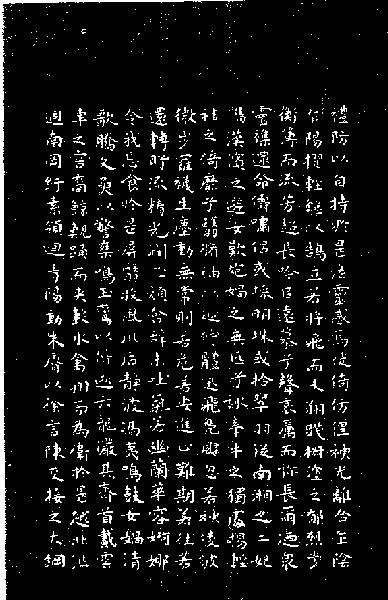 禮防以自持於是洛靈感焉徙倚彷徨神光離合乍陰
乍陽擢輕軀以鶴立若將飛而未翔踐椒塗之郁烈步
衡薄而流芳超長吟以遠慕兮聲哀厲而彌長爾迺衆
靈雜遝命儔嘯侶或採明珠或拾翠羽從南湘之二妃
攜漢濱之遊女歎匏媧之無匹兮詠牽牛之獨處揚輕
袿之綺靡兮翳脩袖以延佇體迅飛鳧飄忽若神凌波
微步羅襪生塵動無常則若危若安進止難期若往若
還轉眄流精光潤玉顏含辭未吐氣若幽蘭華容婀娜
令我忘食於是屏翳收風川后靜波馮夷鳴鼓女媧清
歌騰文魚以警乘鳴玉鸞以偕逝六龍儼其齊首載雲
車之容裔鯨鯢踊而夾轂水禽翔而為衛於是越北沚
過南岡紆素領迴清陽動朱脣以徐言陳交接之大綱